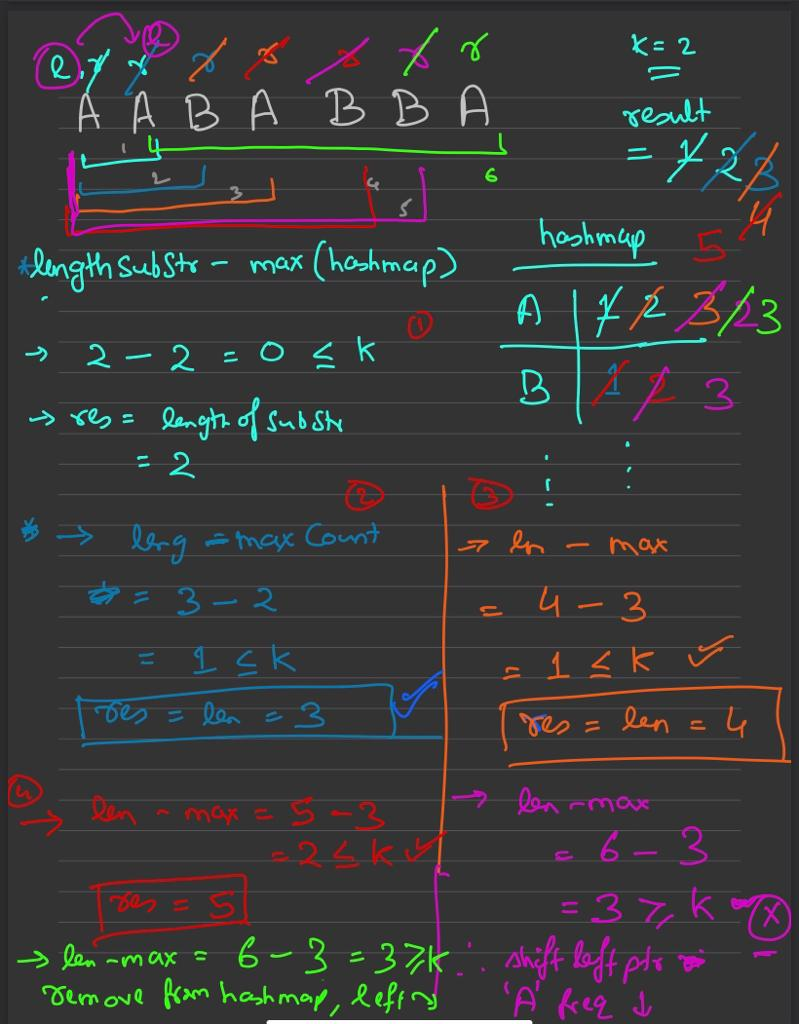 l, r r l r r r r r
k = 2
A A B A B B A
result
= 1 2 3
1 2 3 4 5 6
4
5
hashmap
*lengthSubStr - max (hashmap)
A | 1 2 3 2 3
①
→ 2 - 2 = 0 ≤ k
B | 1 2 3
→ res = length of SubStr
= 2
②
* → leng = max Count
= 3 - 2
= 1 ≤ k
res = len = 3
③
→ ln - max
= 4 - 3
= 1 ≤ k ✓
res = len = 4
④
→ len - max = 5 - 3
= 2 ≤ k ✓
res = 5
→ len - max
= 6 - 3
= 3 ≥ k - X
∴ shift left ptr
'A' freq ↓
→ len - max = 6 - 3 = 3 ≥ k
remove from hashmap, left →